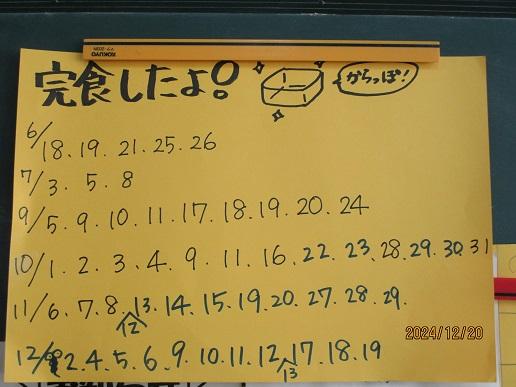 KOKUYO
完食したよ!
からっぽ!
6/18.19.21.25.26
7/3.5.8
9/5.9.10.11.17.18.19.20.24
10/1.2.3.4.9.11.16.22.23.28.29.30.31
11/6.7.8.12.13.14.15.19.20.27.28.29.
2024/12/20
12/2.4.5.6.9.10.11.12.13.17.18.19